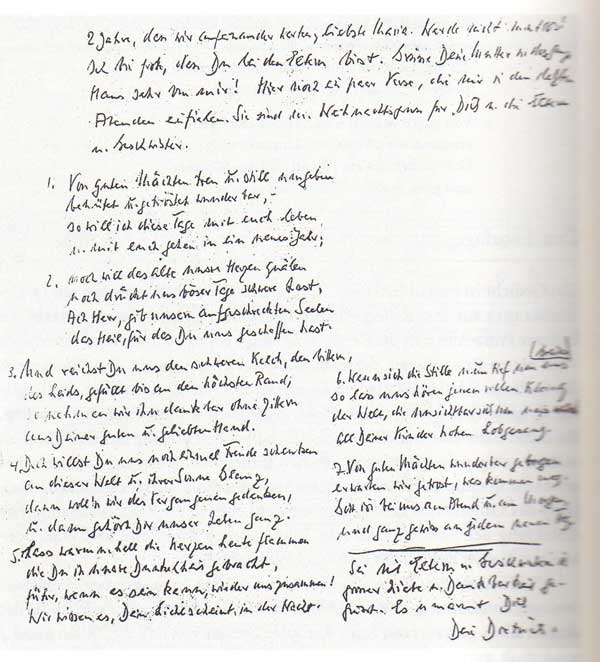 2 Jahre, daß wir aufeinander warten, liebste Maria. Werde nicht mutlos!
Ich bin froh, daß Du bei den Eltern bist. Grüße Deine Mutter u. das ganze
Haus sehr von mir! Hier noch ein paar Verse, die mir in den letzten
Abenden einfielen. Sie sind der Weihnachtsgruß für Dich u. die Eltern
u. Geschwister.
1. Von guten Mächten treu u. still umgeben
behütet u. getröstet wunderbar, –
so will ich diese Tage mit euch leben
u. mit euch gehen in ein neues Jahr;
2. noch will das alte unsre Herzen quälen
noch drückt uns böser Tage schwere Last,
Ach Herr, gib unsern aufgeschreckten Seelen
das Heil, für das Du uns geschaffen hast.
3. Und reichst Du uns den schweren Kelch, den bittern,
des Leids, gefüllt bis an den höchsten Rand,
so nehmen wir ihn dankbar ohne Zittern
aus Deiner guten u. geliebten Hand.
4. Doch willst Du uns noch einmal Freude schenken
an dieser Welt u. ihrer Sonne Glanz,
dann woll'n wir des Vergangenen gedenken,
u. dann gehört Dir unser Leben ganz.
5. Lass warm u. hell die Kerzen heute flammen
die Du in unsre Dunkelheit gebracht,
führ, wenn es sein kann, wieder uns zusammen!
Wir wissen es, Dein Licht scheint in der Nacht.
6. Wenn sich die Stille nun tief um uns
so lass uns hören jenen vollen Klang
der Welt, die unsichtbar sich um uns
all Deiner Kinder hohen Lobgesang.
7. Von guten Mächten wunderbar geborgen
erwarten wir getrost, was kommen mag.
Gott ist bei uns am Abend u. am Morgen
und ganz gewiss an jedem neuen Tag.
Sei mit Eltern u. Geschwistern in
grosser Liebe u. Dankbarkeit ge-
grüsst. Es umarmt Dich
Dein Dietrich.